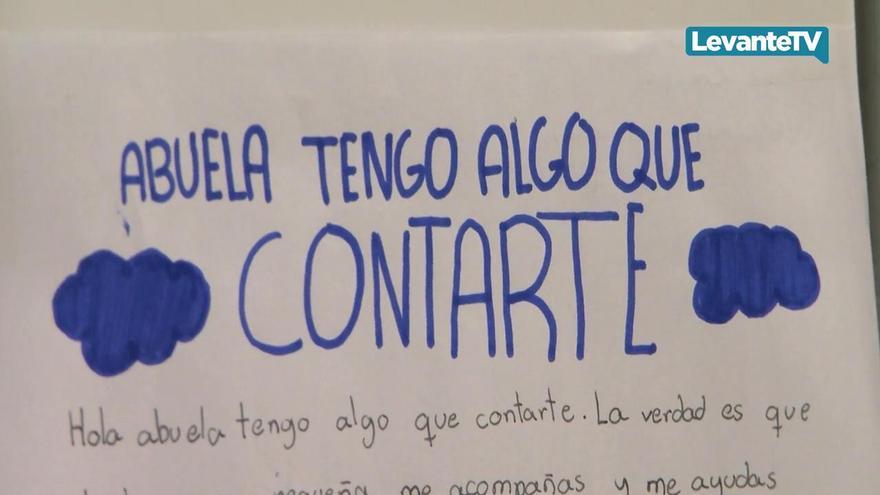 LevanteTV
ABUELA TENGO ALGO QUE
CONTARTE
Hola abuela tengo algo que contarte. La verdad es que
pequeña me acompañas y me ayudas